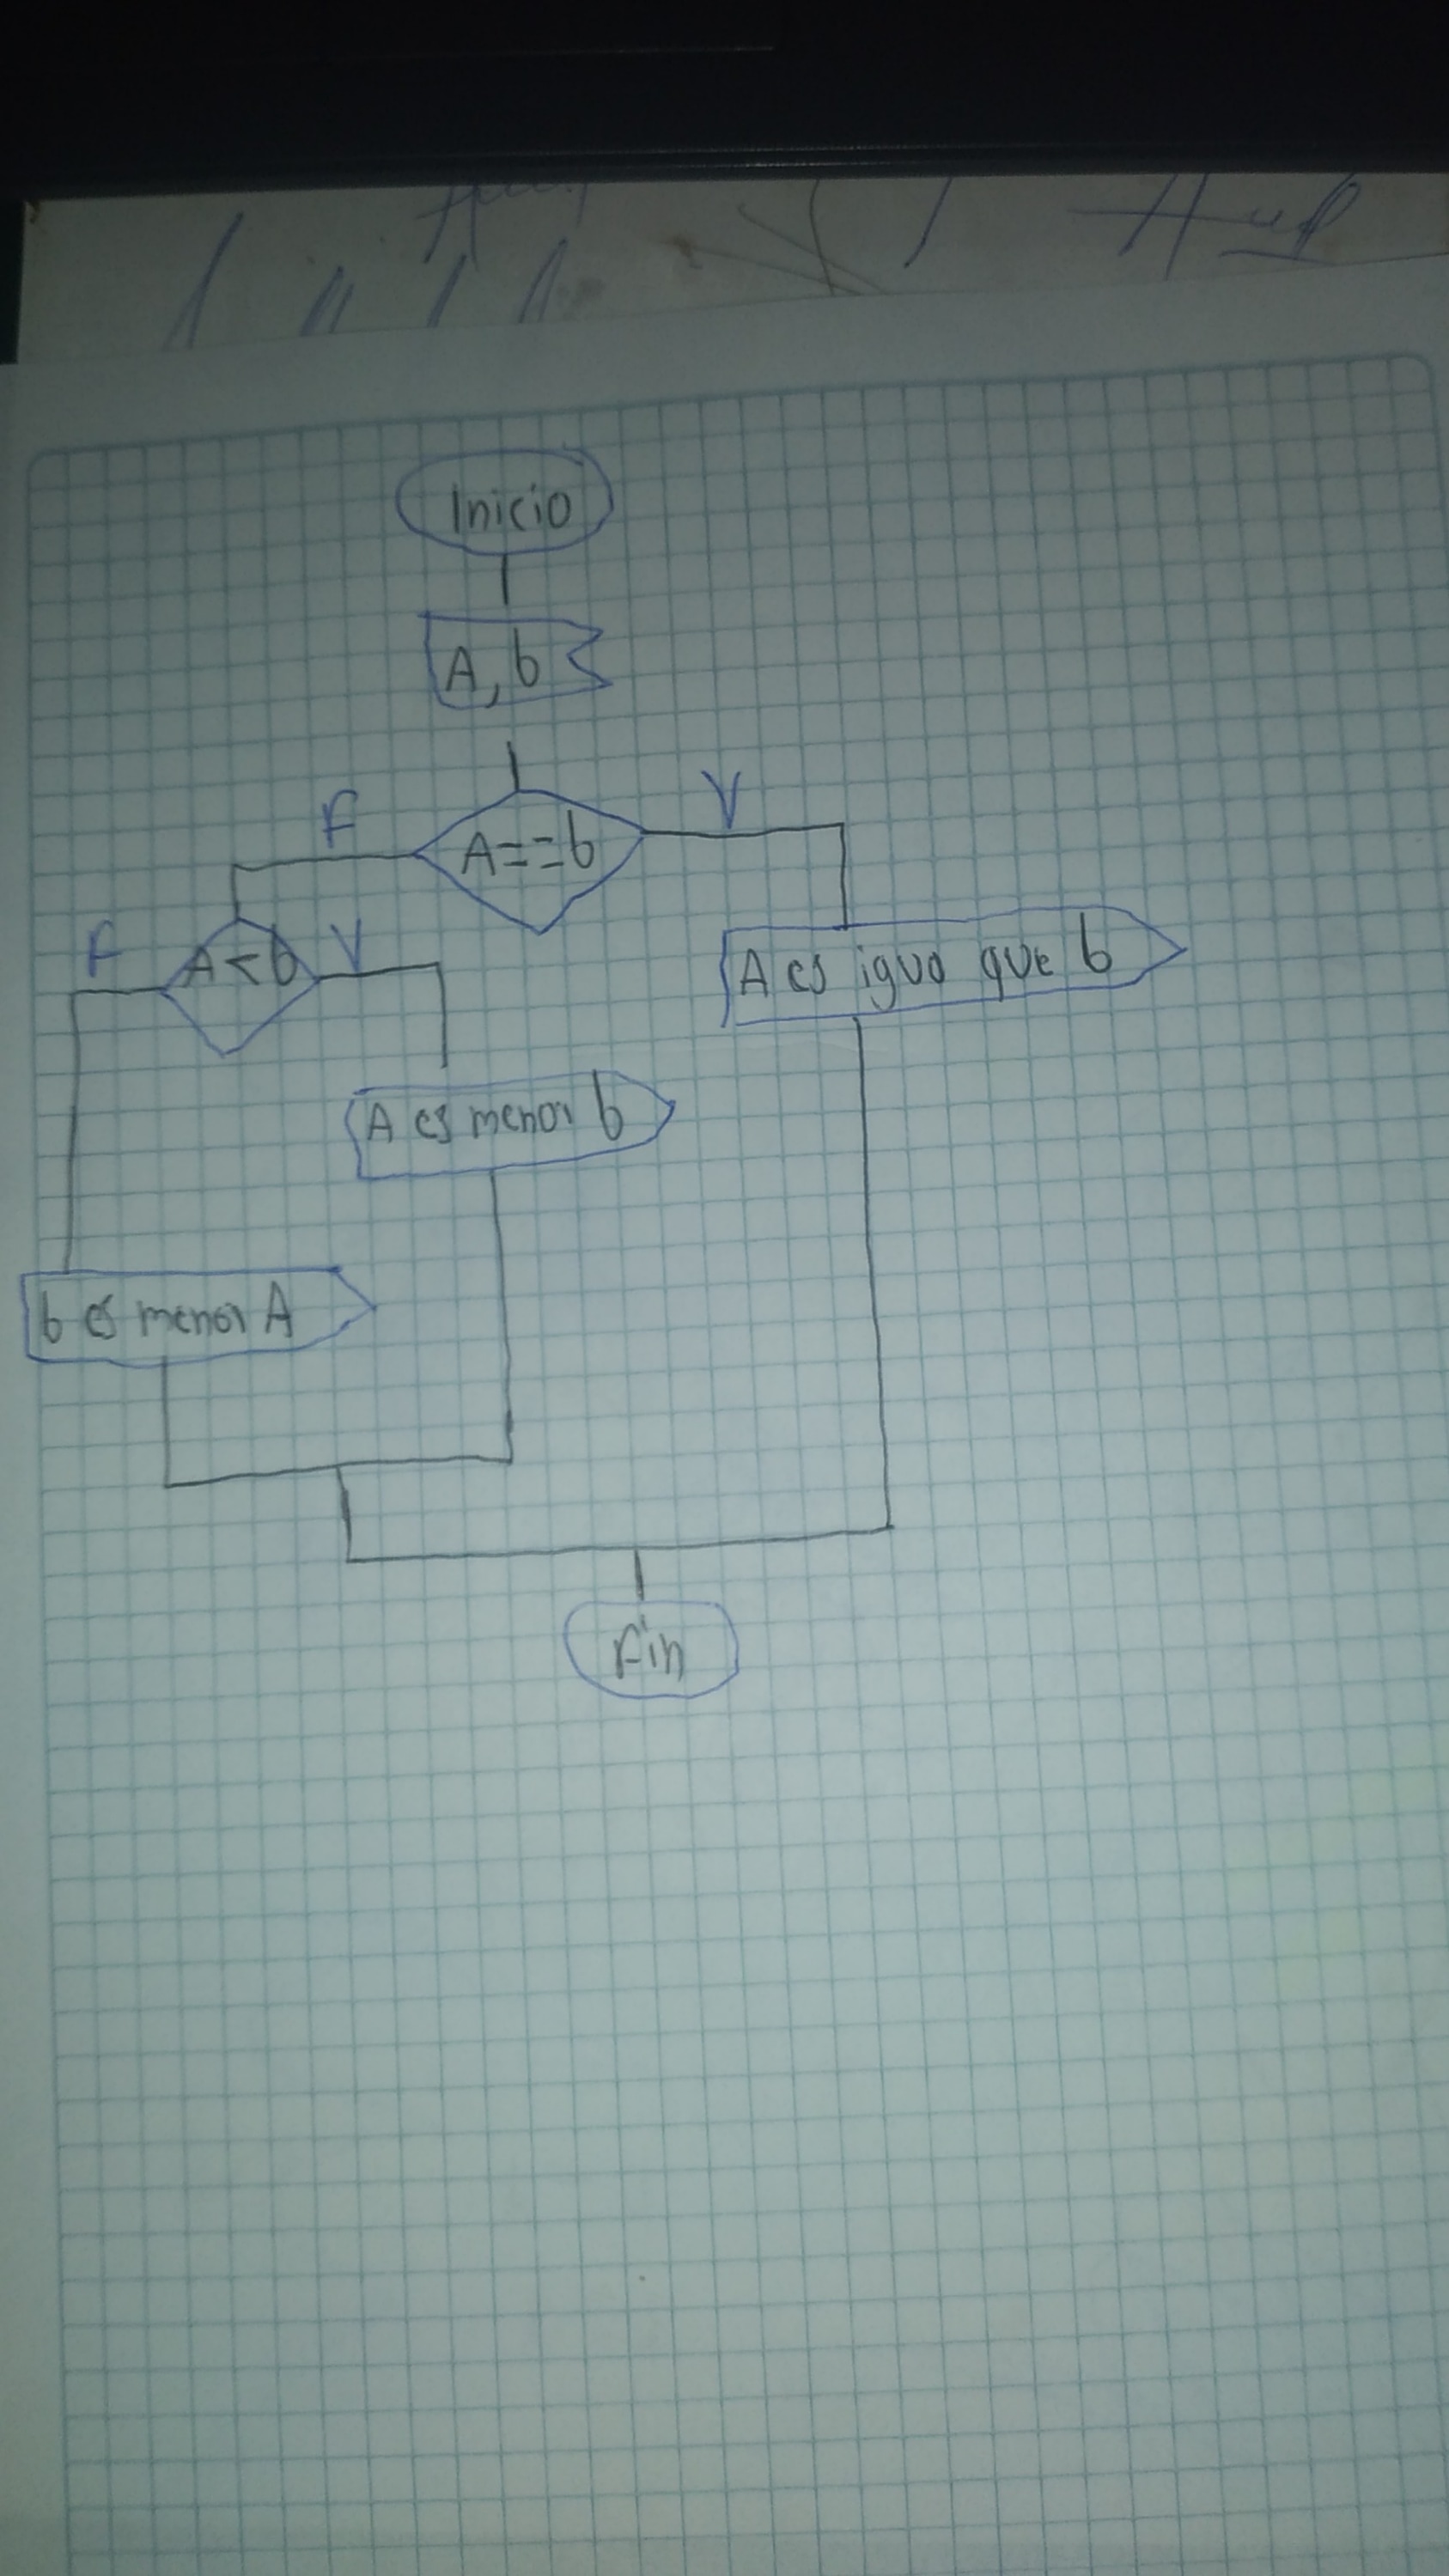 Inicio
A, b
F
V
A==b
F
A<b
V
A es iguo que b
A es menor b
b es menor A
Fin